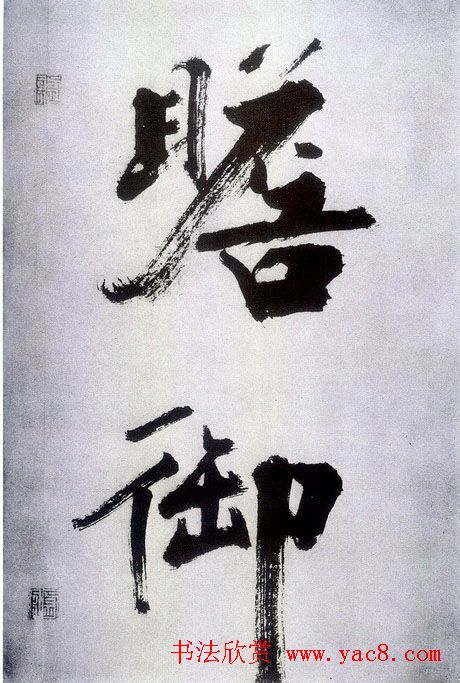 瞻
御
书法欣赏 www.yac8.com